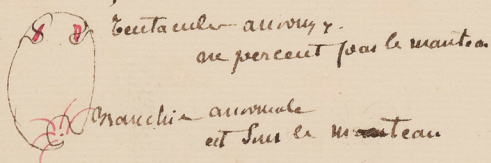 Tentacules
ne percent pas le manteau
Branchie anormale
est sous le manteau